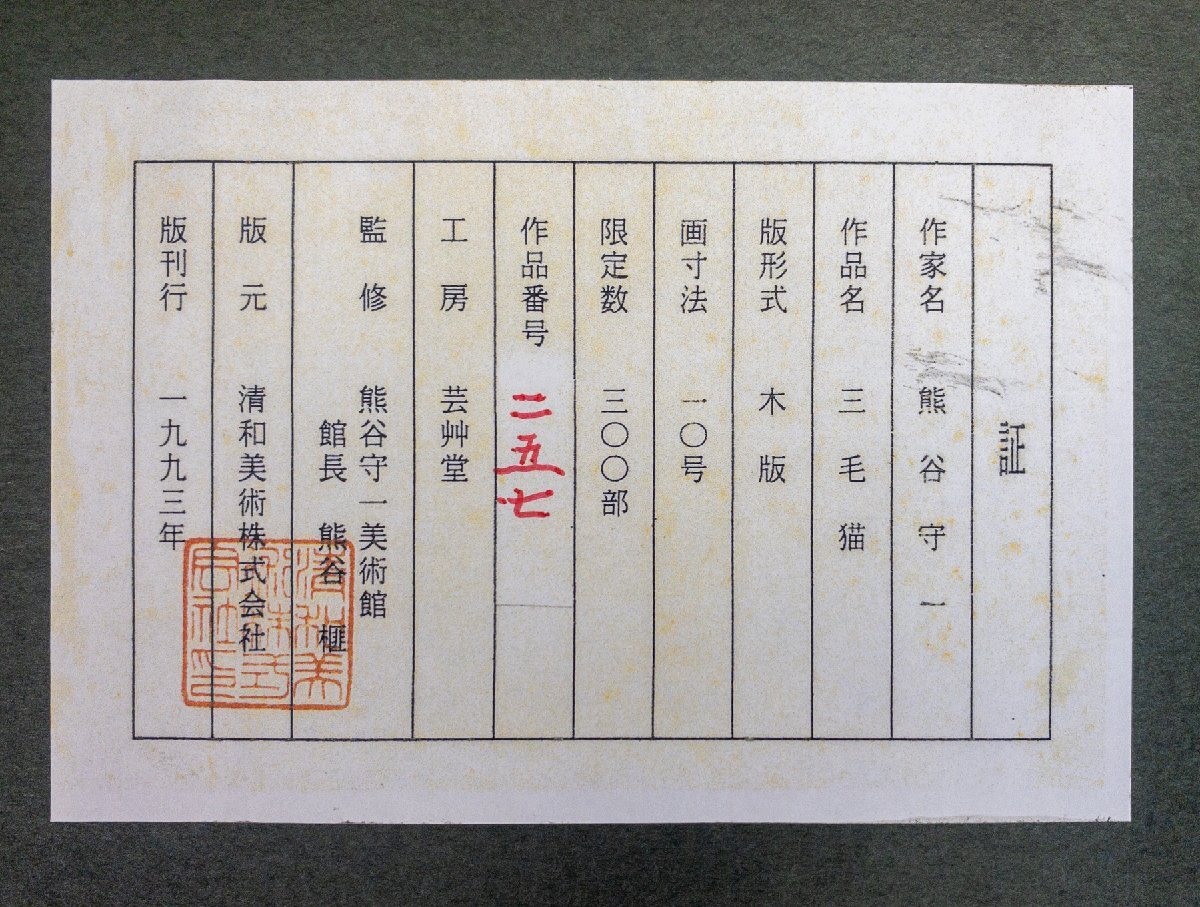 証
作家名 熊谷守一
作品名 三毛猫
版形式 木版
画寸法 一〇号
限定数 三〇〇部
作品番号 二五七
工房 芸艸堂
監修 熊谷守一美術館
館長 熊谷 榧
版元 清和美術株式会社
版刊行 一九九三年
清和美術株式会社印